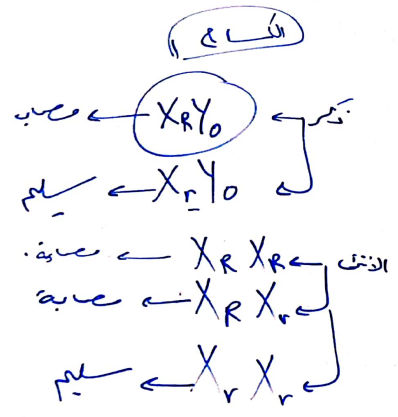 الكساح
ذكر ← X_R Y_0 ← مصاب
X_r Y_0 ← سليم
الأنثى ← X_R X_R ← مصابة.
X_R X_r ← مصابة
X_r X_r ← سليم